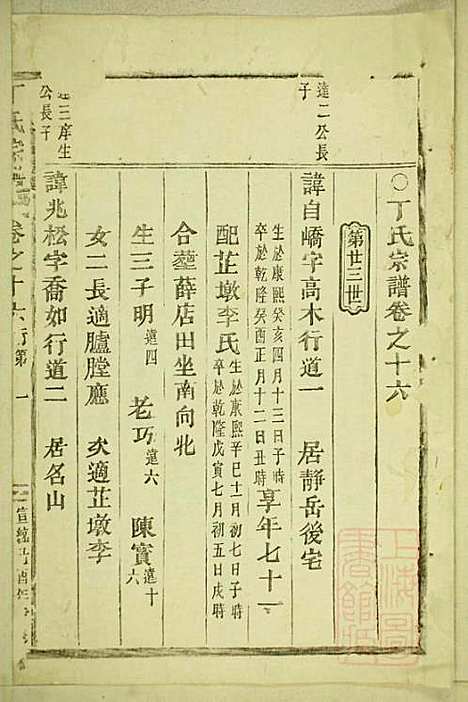 ○丁氏宗譜卷之十六
第廿三世
達二公長子
諱自嶠字高木行道一　居靜岳後宅
生於康熙癸亥四月十三日子時
卒於乾隆癸酉正月十二日丑時
享年七十一
配芷墩李氏
生於康熙辛巳十一月初七日子時
卒於乾隆戊寅七月初五日戌時
合塟薛店田坐南向北
生三子明遠四　老巧遠六　陳實遠十六
女二長適臚膛應　次適芷墩李
達三庠生公長子
諱兆松字喬如行道二　居名山
丁氏宗譜　卷之十六　行第　一
宣統
上海圖書館藏